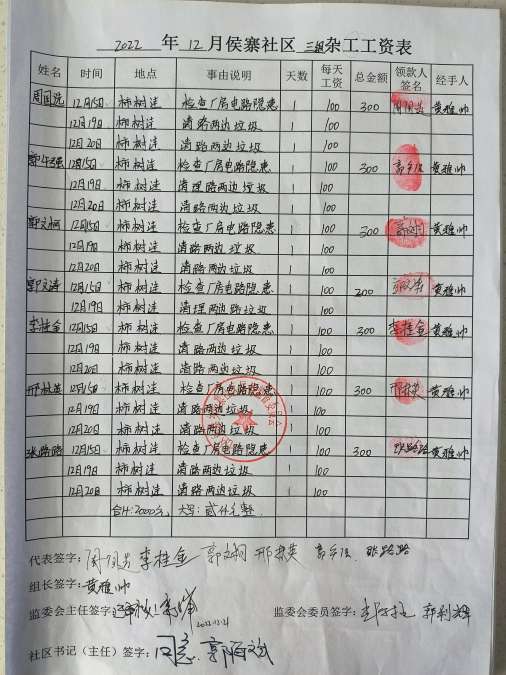 2022 年 12 月侯寨社区 三组杂工工资表
姓名 时间 地点 事由说明 天数 每天工资 总金额 领款人签名 经手人
周国选 12月15日 柿树洼 检查厂房电路隐患 1 100 300 黄雅帅
12月19日 柿树洼 清路两边垃圾 1 100
12月20日 柿树洼 清路两边垃圾 1 100
12月15日 柿树洼 检查厂房电路隐患 1 100 300 黄雅帅
12月19日 柿树洼 清理路两边垃圾 1 100
12月20日 柿树洼 清路两边垃圾 1 100
郭文娴 12月15日 柿树洼 检查厂房电路隐患 1 100 300 黄雅帅
12月19日 柿树洼 清路两边垃圾 1 100
12月20日 柿树洼 清路两边垃圾 1 100
郭文涛 12月15日 柿树洼 检查厂房电路隐患 1 100 200 黄雅帅
12月19日 柿树洼 清理两边垃圾 1 100
李桂金 12月15日 柿树洼 检查厂房电路隐患 1 100 300 李桂金 黄雅帅
12月19日 柿树洼 清路两边垃圾 1 100
12月20日 柿树洼 清路两边垃圾 1 100
12月15日 柿树洼 检查厂房电路隐患 1 100 300 黄雅帅
12月19日 柿树洼 清路两边垃圾 1 100
12月20日 柿树洼 清路两边垃圾 1 100
张路路 12月15日 柿树洼 检查厂房电路隐患 1 100 300 张路路 黄雅帅
12月19日 柿树洼 清路两边垃圾 1 100
12月20日 柿树洼 清路两边垃圾 1 100
合计:2000元 大写:贰仟元整
代表签字: 李桂金 郭文娴 张路路
组长签字: 黄雅帅
监委会主任签字: 监委会委员签字: 郭利辉
2022.12.21
社区书记(主任)签字: